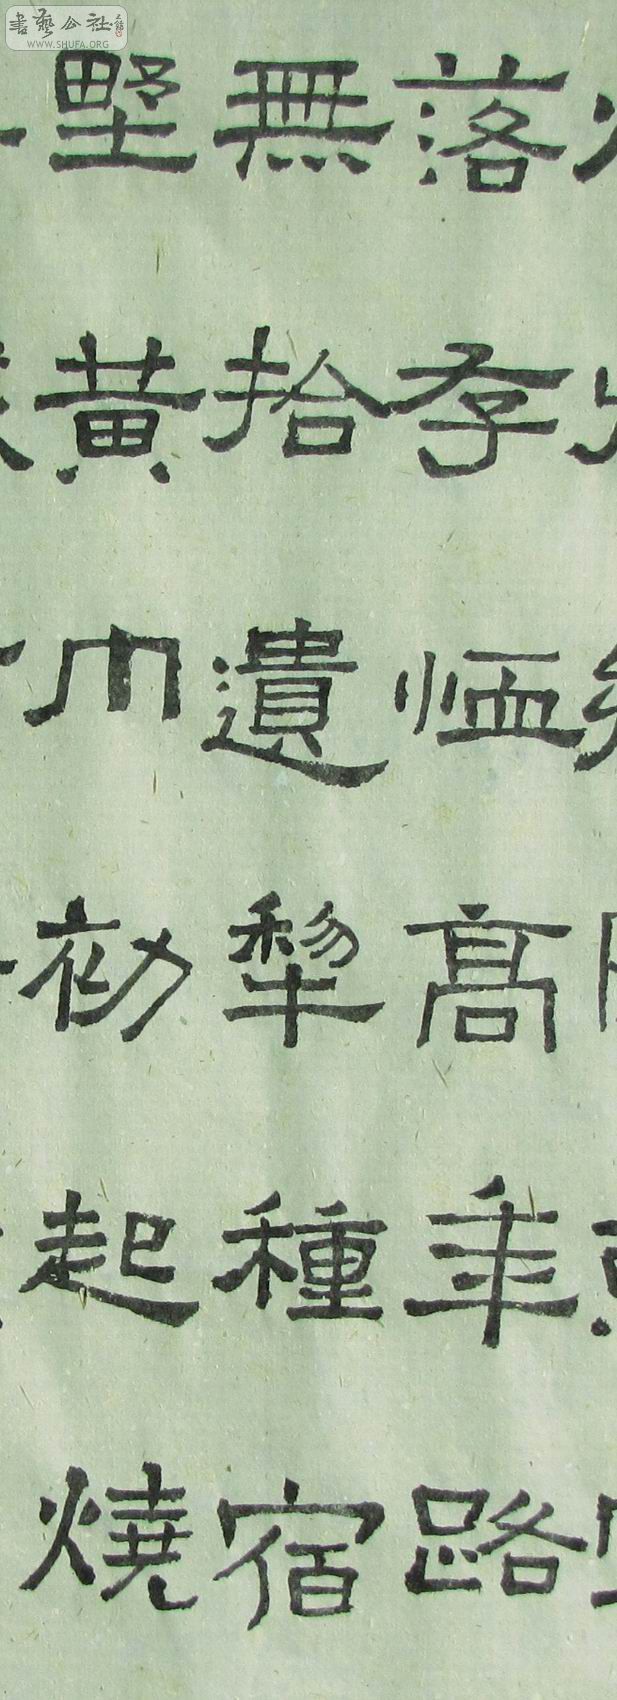 書藝公社
WWW.SHUFA.ORG
落存恤高年路
無拾遺犂種宿
壄黃巾初起燒